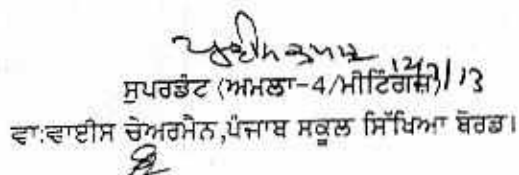 12/7/13
ਸੁਪਰਡੈਂਟ (ਅਮਲਾ-4/ਮੀਟਿੰਗਜ਼)
ਵਾ:ਵਾਈਸ ਚੇਅਰਮੈਨ,ਪੰਜਾਬ ਸਕੂਲ ਸਿੱਖਿਆ ਬੋਰਡ।